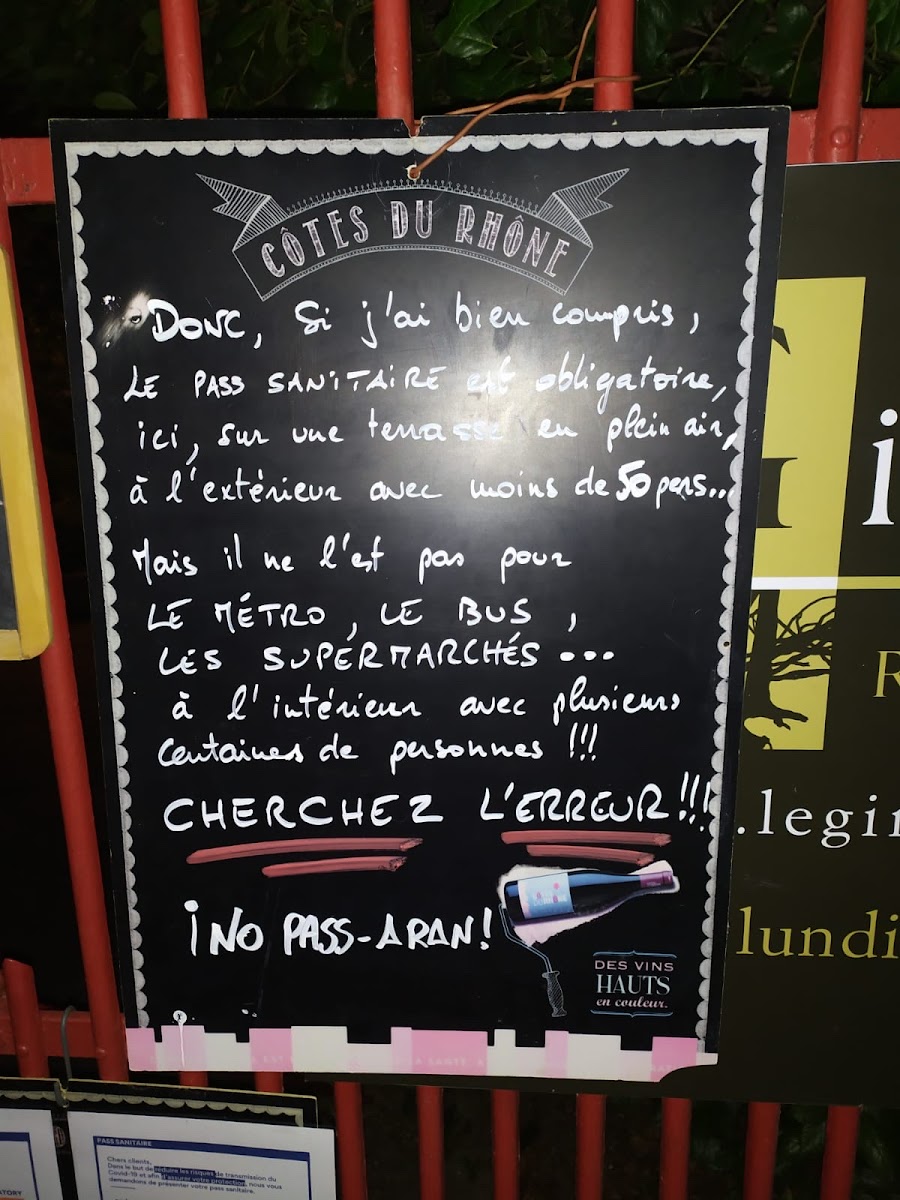 CÔTES DU RHÔNE
DONC, Si j'ai bien compris,
LE PASS SANITAIRE est obligatoire,
ici, sur une terrasse en plein air,
à l'extérieur avec moins de 50 pers...
Mais il ne l'est pas pour
LE MÉTRO, LE BUS,
LES SUPERMARCHÉS ...
à l'intérieur avec plusieurs
centaines de personnes !!!
CHERCHEZ L'ERREUR!!!
¡NO PASS-ARAN!
DES VINS
HAUTS
en couleur.
i
R
.legin
lundi
PASS SANITAIRE
Chers clients,
Dans le but de réduire les risques de transmission du
Covid-19 et afin d'assurer votre protection, nous vous
demandons de présenter votre pass sanitaire.
ATORY